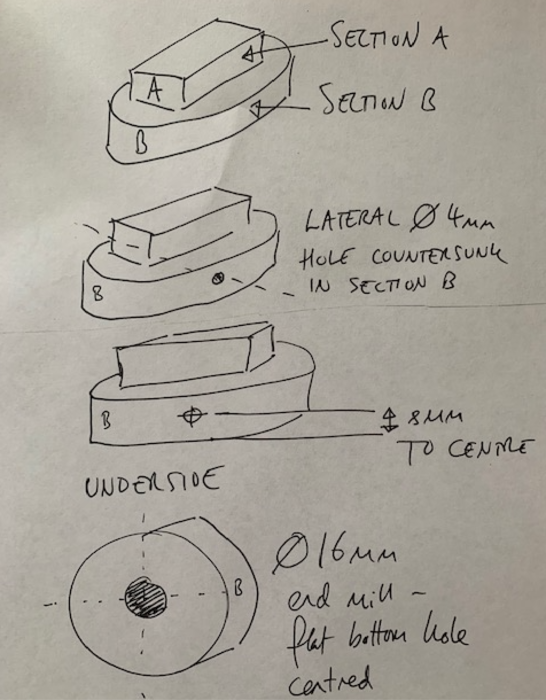 SECTION A
A
SECTION B
B
LATERAL Ø 4mm
HOLE COUNTERSUNK
IN SECTION B
B
B
8MM
TO CENTRE
UNDERSIDE
Ø16mm
B
end mill -
flat bottom hole
centred